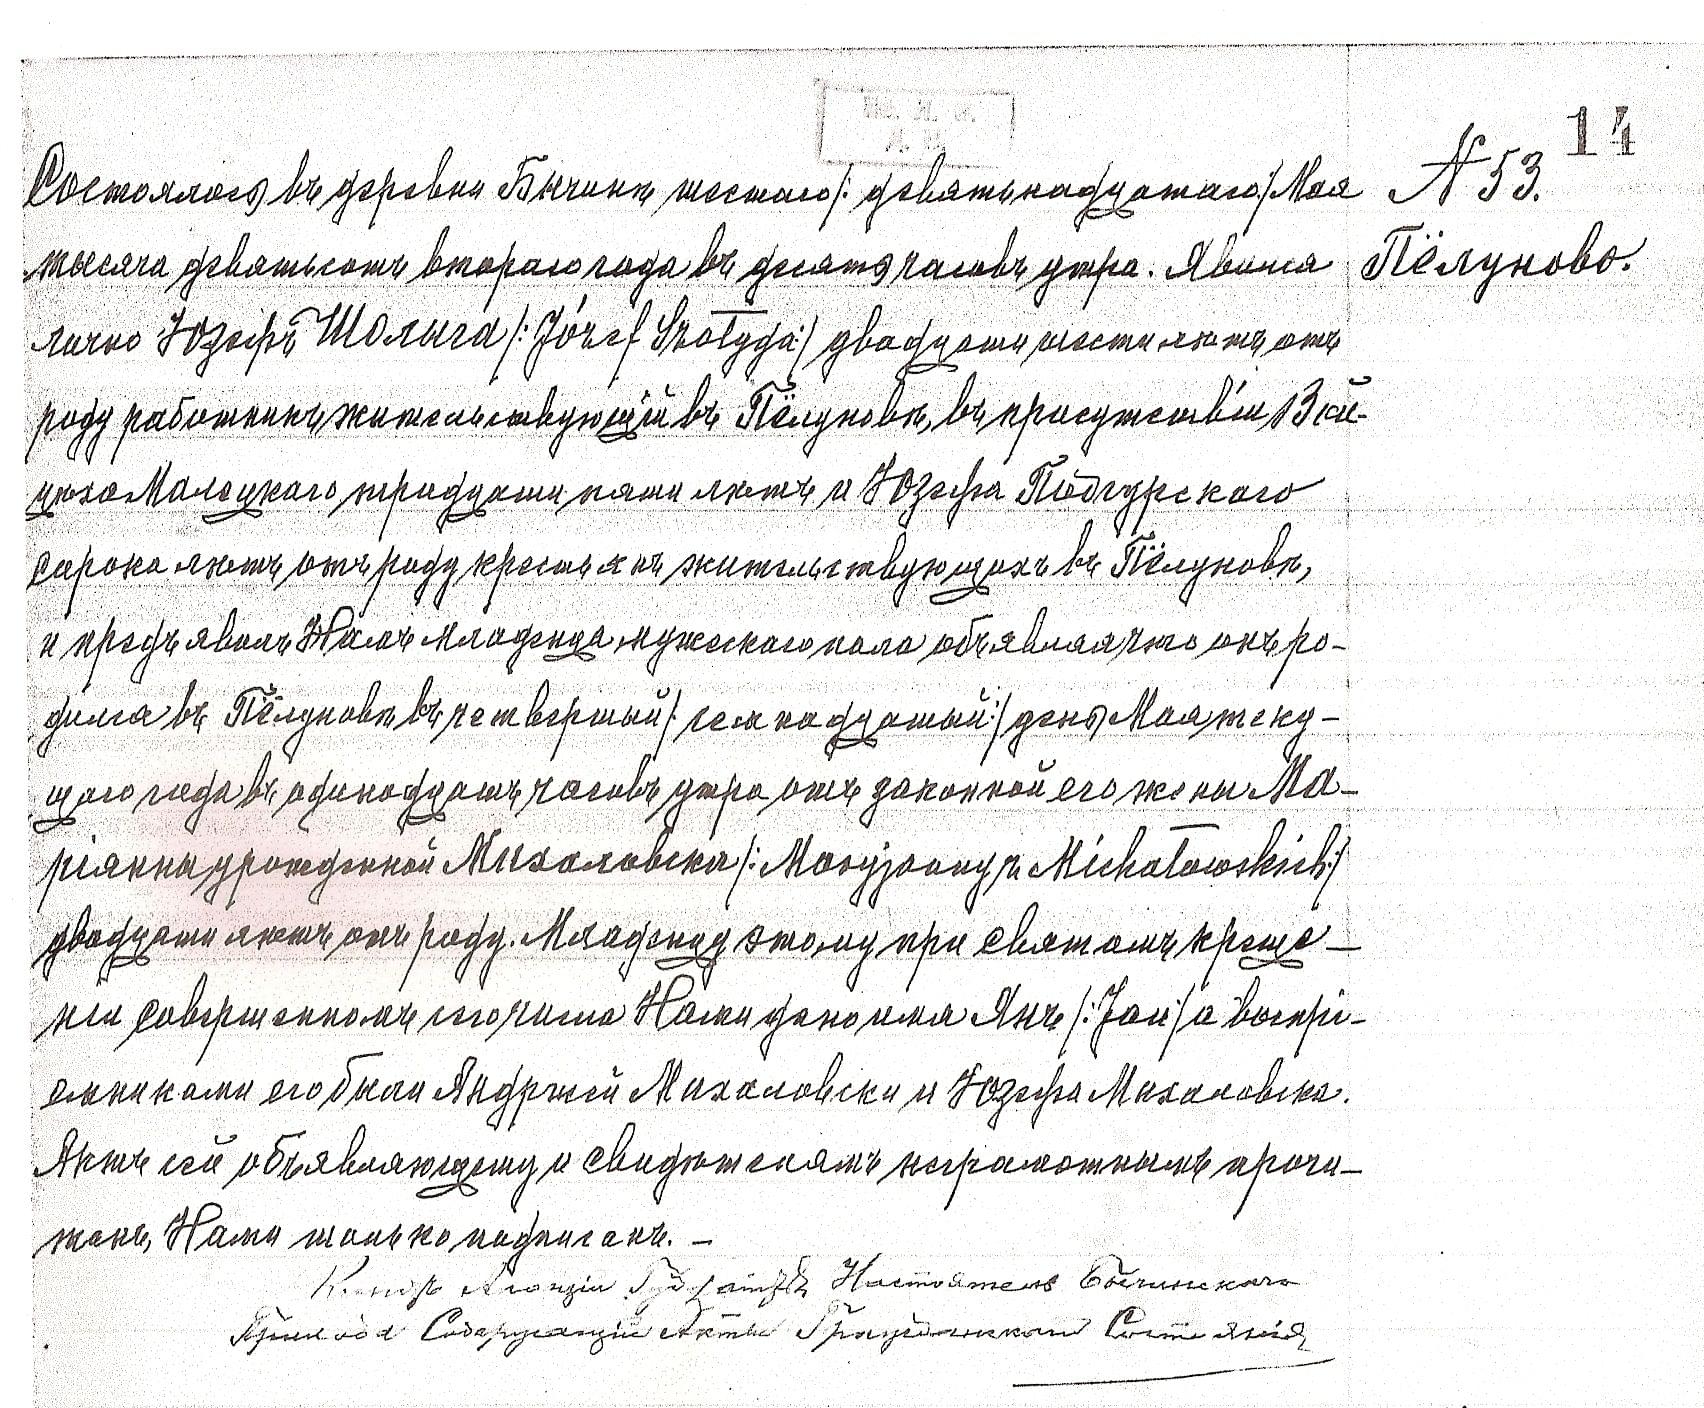 14
№ 53.
Пёлуново.
Состоялось въ деревни Бычинѣ шестаго /: девятьнадцатаго:/ Мая
тысяча девятьсотъ втораго года въ десять часовъ утра. Явился
лично Юзефъ Шолыга /: Józef Szołyga:/ двадцати шести лѣтъ отъ
роду работникъ жительствующій въ Пёлуновѣ, въ присутствіи Вой-
цѣха Малецкаго тридцати пяти лѣтъ и Юзефа Подгурскаго
сорока лѣтъ отъ роду крестьянъ жительствующихъ въ Пёлуновѣ,
и предъявилъ Намъ младенца мужескаго пола объявляя что онъ ро-
дился въ Пёлуновѣ въ четвертый /: семнадцатый:/ день Мая теку-
щаго года въ одинадцать часовъ утра отъ законной его жены Ма-
ріянны урожденной Михаловска /: Maryjanny z Michałowskich:/
двадцати лѣтъ отъ роду. Младенцу этому при святомъ креще-
ніи совершенномъ сего числа Нами дано имя Янъ /: Jan:/ а воспрі-
емниками его были Андржей Михаловски и Юзефа Михаловска.
Актъ сей объявляющему и свидѣтелямъ неграмотнымъ прочи-
танъ, Нами только подписанъ. —
Ксендзъ Настоятель Бычинскаго
Прихода Содержащій Акты Гражданскаго Состоянія